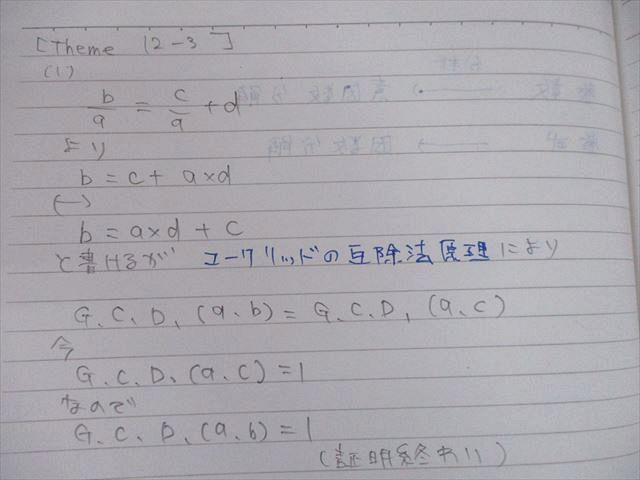 [Theme 12-3]
(1)
b/a = c/a + d
より
b = c + a×d
(→)
b = a×d + c
と書けるが ユークリッドの互除法原理により
G.C.D.(a.b) = G.C.D.(a.c)
今
G.C.D.(a.c) = 1
なので
G.C.D.(a.b) = 1
(証明終わり)